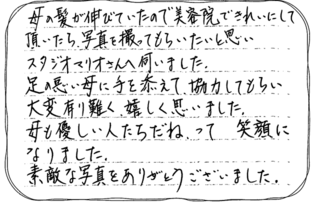 母の髪が伸びていたので美容院できれいにして
頂いたら、写真を撮ってもらいたいと思い
スタジオマリオさんへ伺いました。
足の悪い母に手を添えて、協力してもらい
大変有り難く、嬉しく思いました。
母も優しい人たちだね、って 笑顔に
なりました。
素敵な写真をありがとうございました。